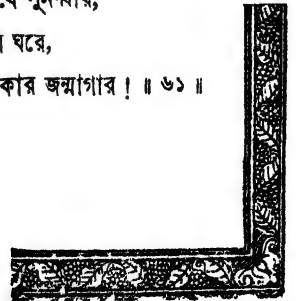 ঘরে,
কার জন্মাগার ! ॥ ৬১ ॥